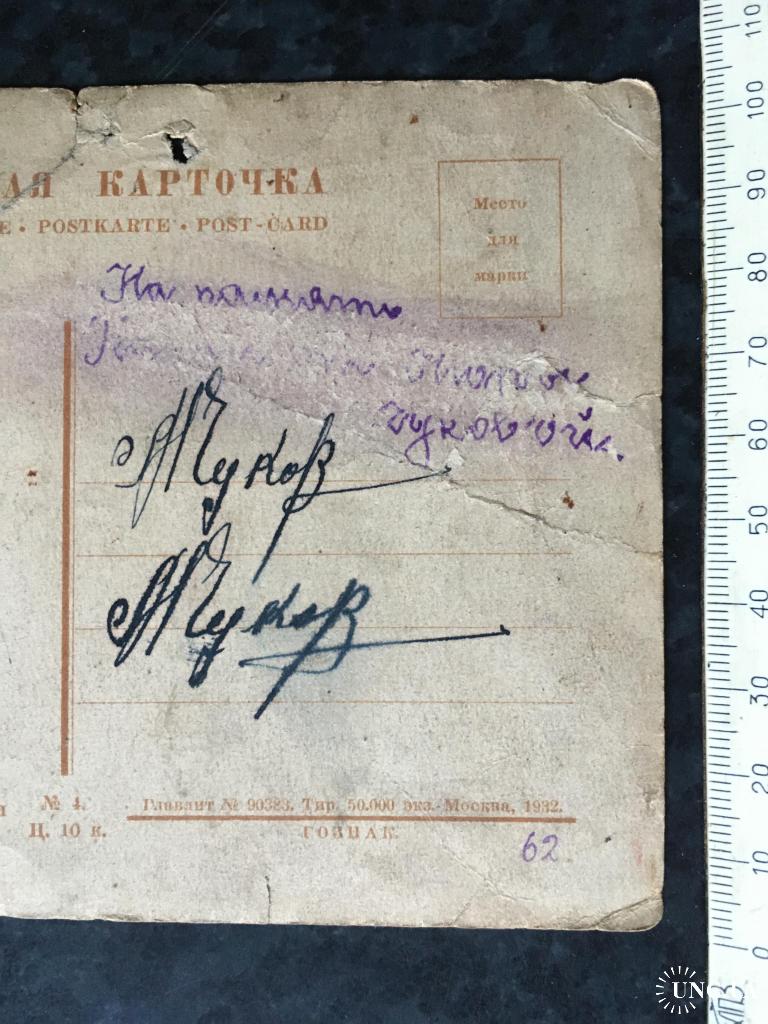 АЯ КАРТОЧКА
Е • POSTKARTE • POST-CARD
Место
для
марки
На память
Чуковой.
МЧуков
МЧуков
№ 4.
Ц. 10 к.
Главлит № 90383. Тир. 50.000 экз. Москва, 1932.
ГОЗНАК.
62
110
100
90
80
70
60
50
40
30
20
10
0
UN